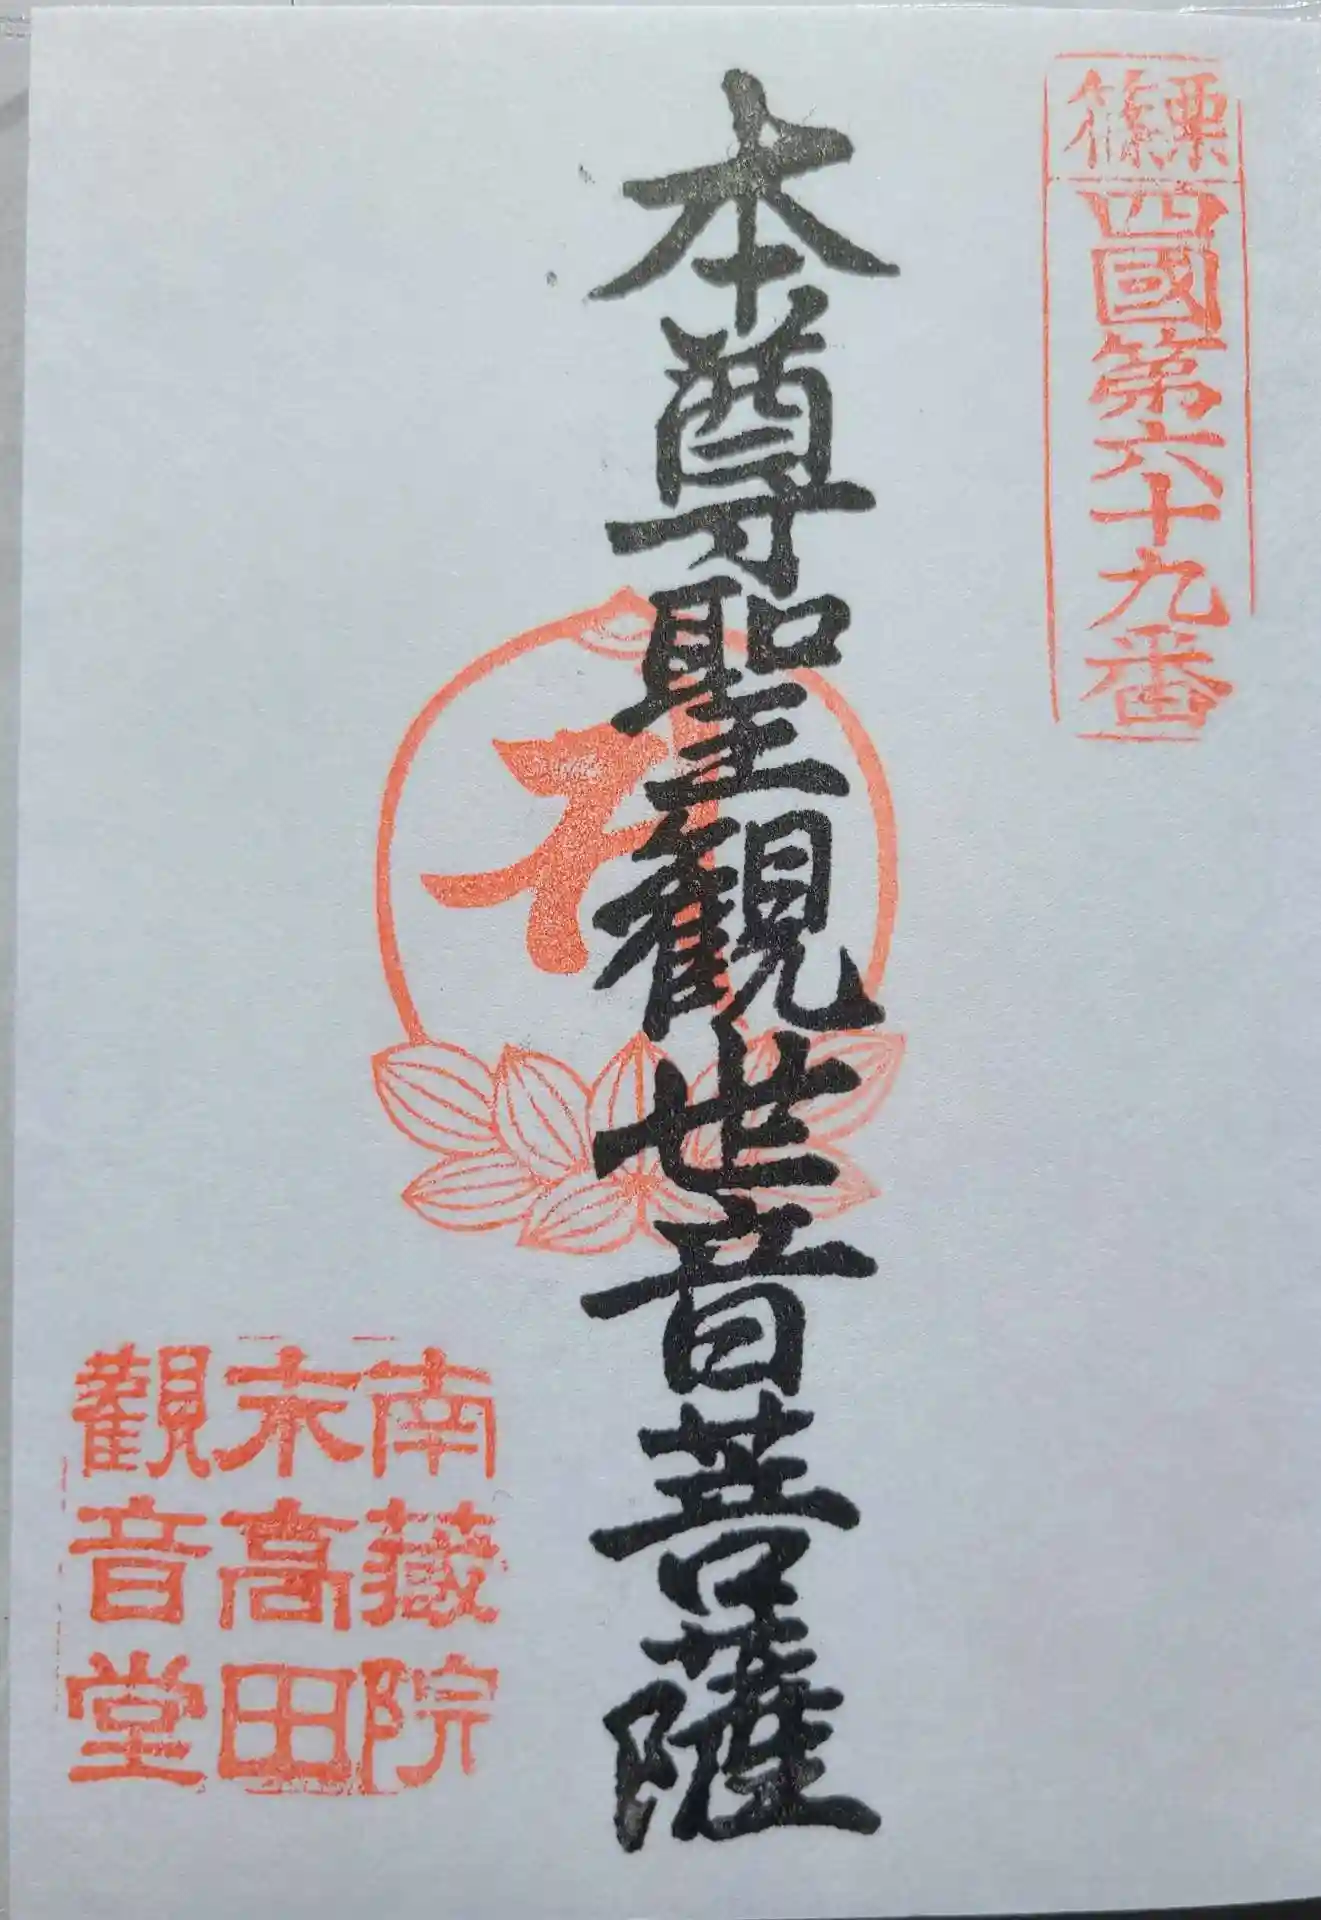 篠栗
四國第六十九番
本尊聖観世音菩薩
南蔵院
末高田
觀音堂